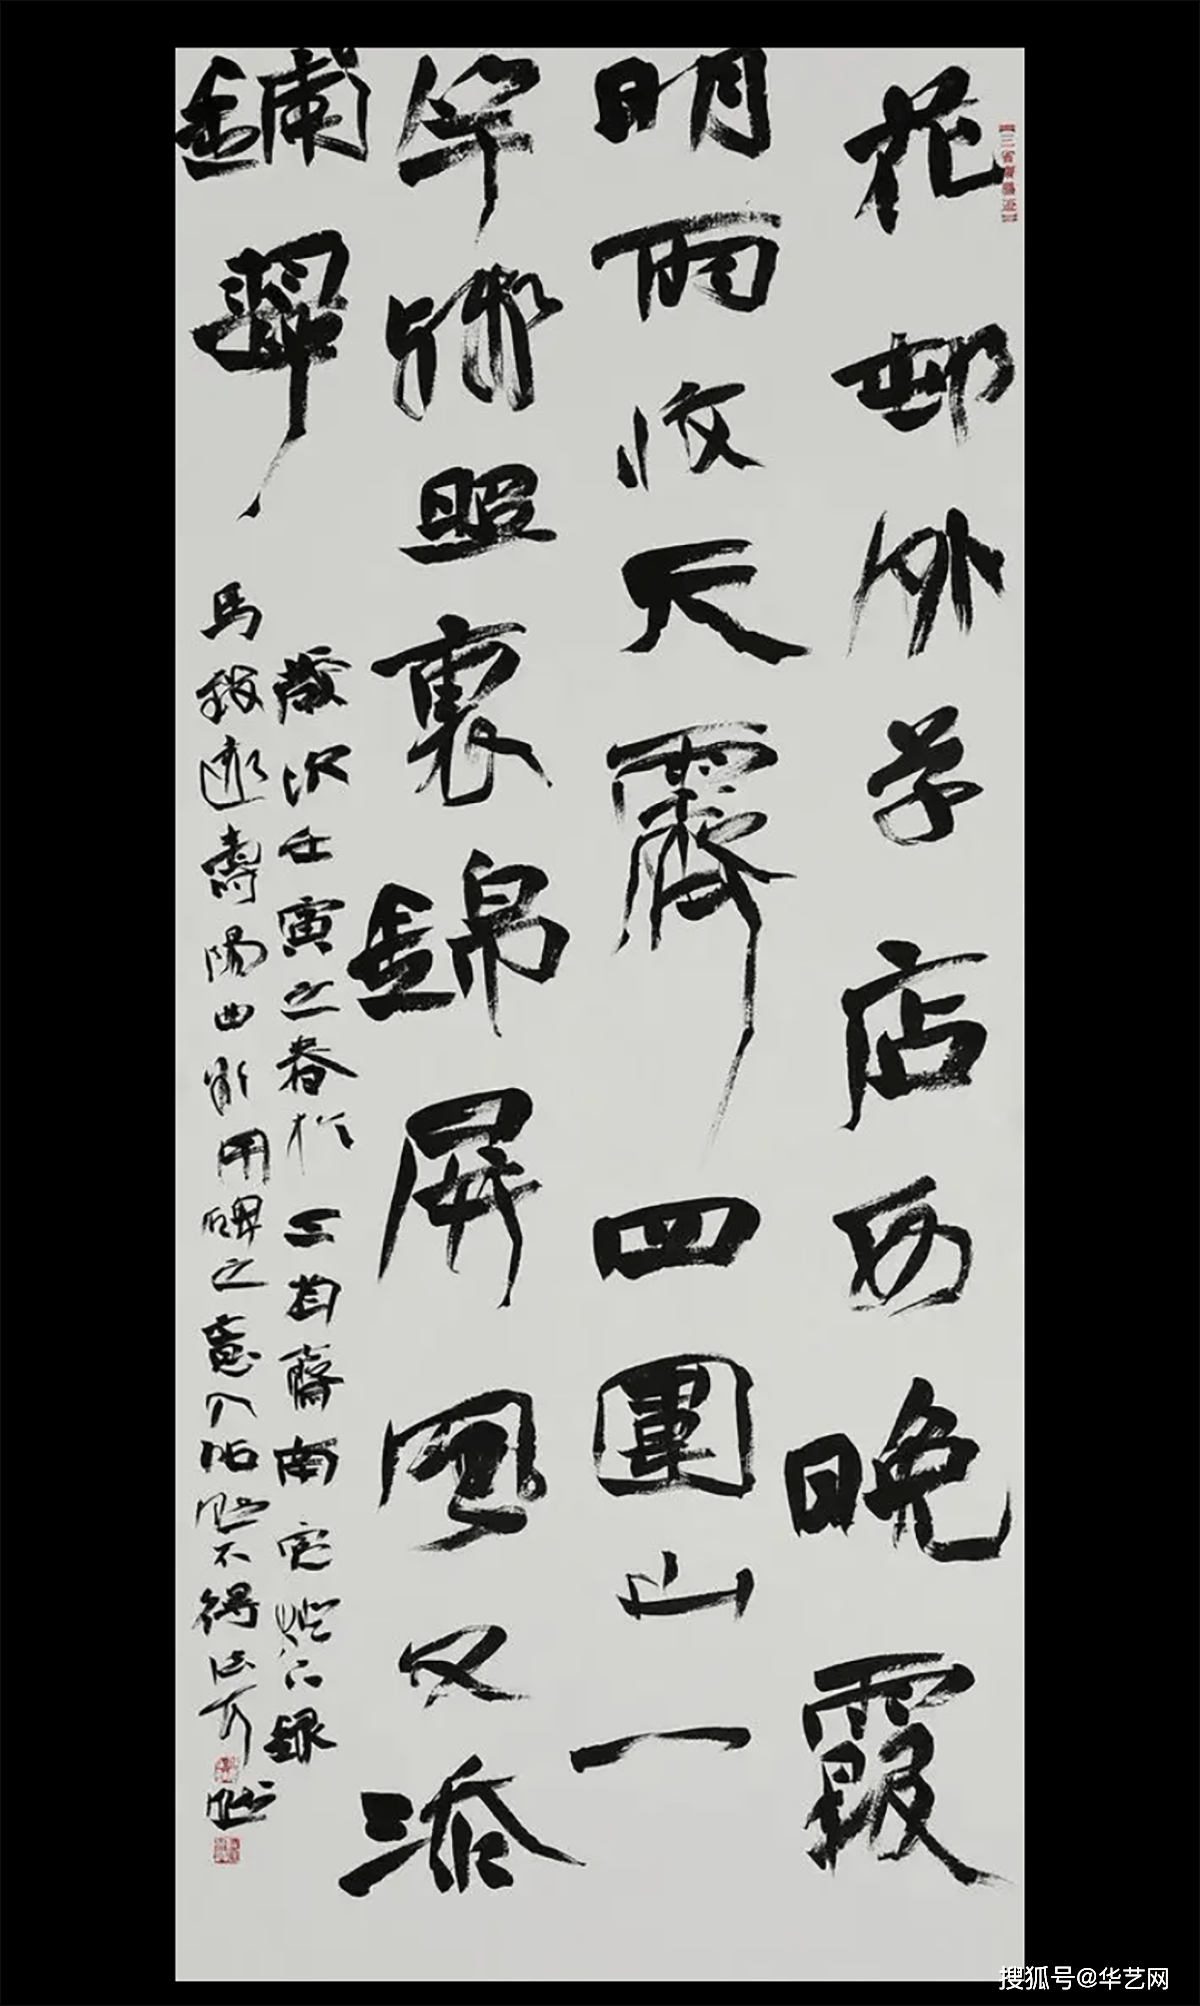 花邨外草店西晚霞
明雨收天霽四圍山一
竿殘照裏錦屏風又添
鋪翠
歲次壬寅之春於三省齋南窗燈下録
馬致遠壽陽曲 用碑之意入帖 不得
搜狐号@华艺网